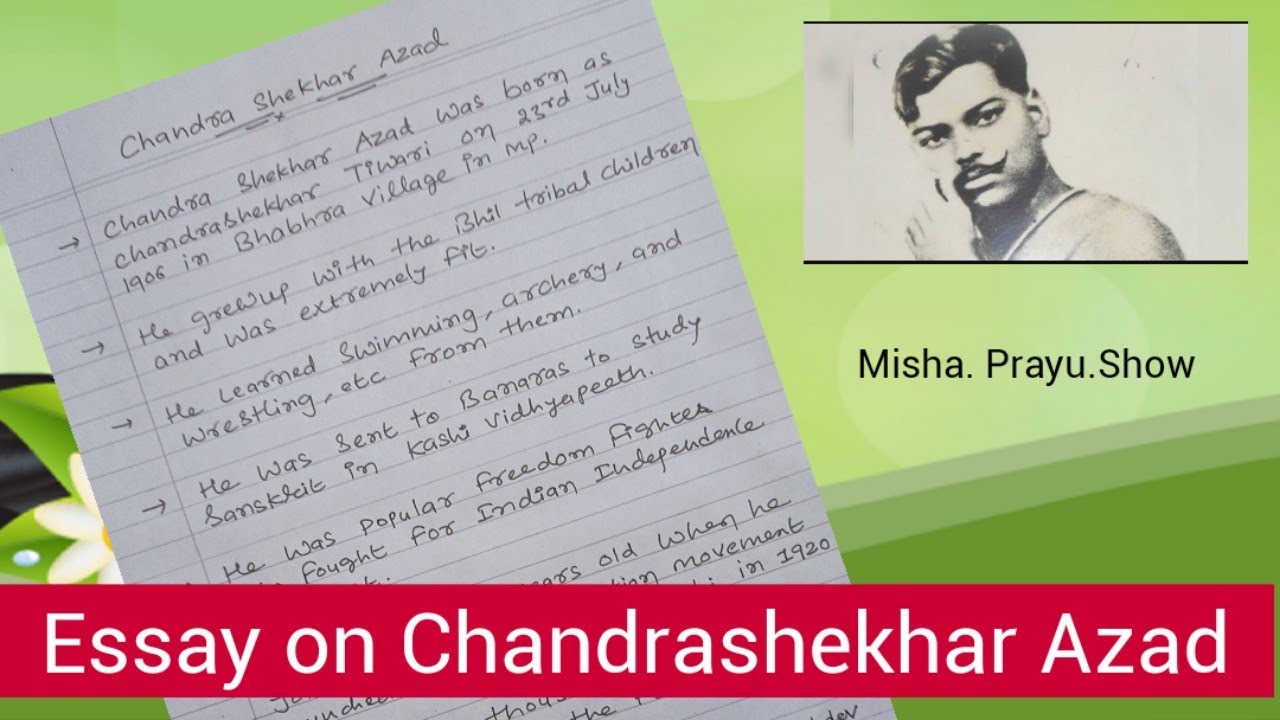 Chandra Shekhar Azad
→ Chandra Shekhar Azad was born as
Chandrashekhar Tiwari on 23rd July
1906 in Bhabhra village in MP.
→ He grewup with the Bhil tribal children
and was extremely fit.
→ He learned swimming, archery, and
wrestling, etc from them.
→ He was sent to Banaras to study
Sanskrit in Kashi Vidhyapeeth.
He was popular freedom fighter
fought for Indian Independence
old when he
movement
in 1920
thous
the
dev
Misha. Prayu.Show
Essay on Chandrashekhar Azad